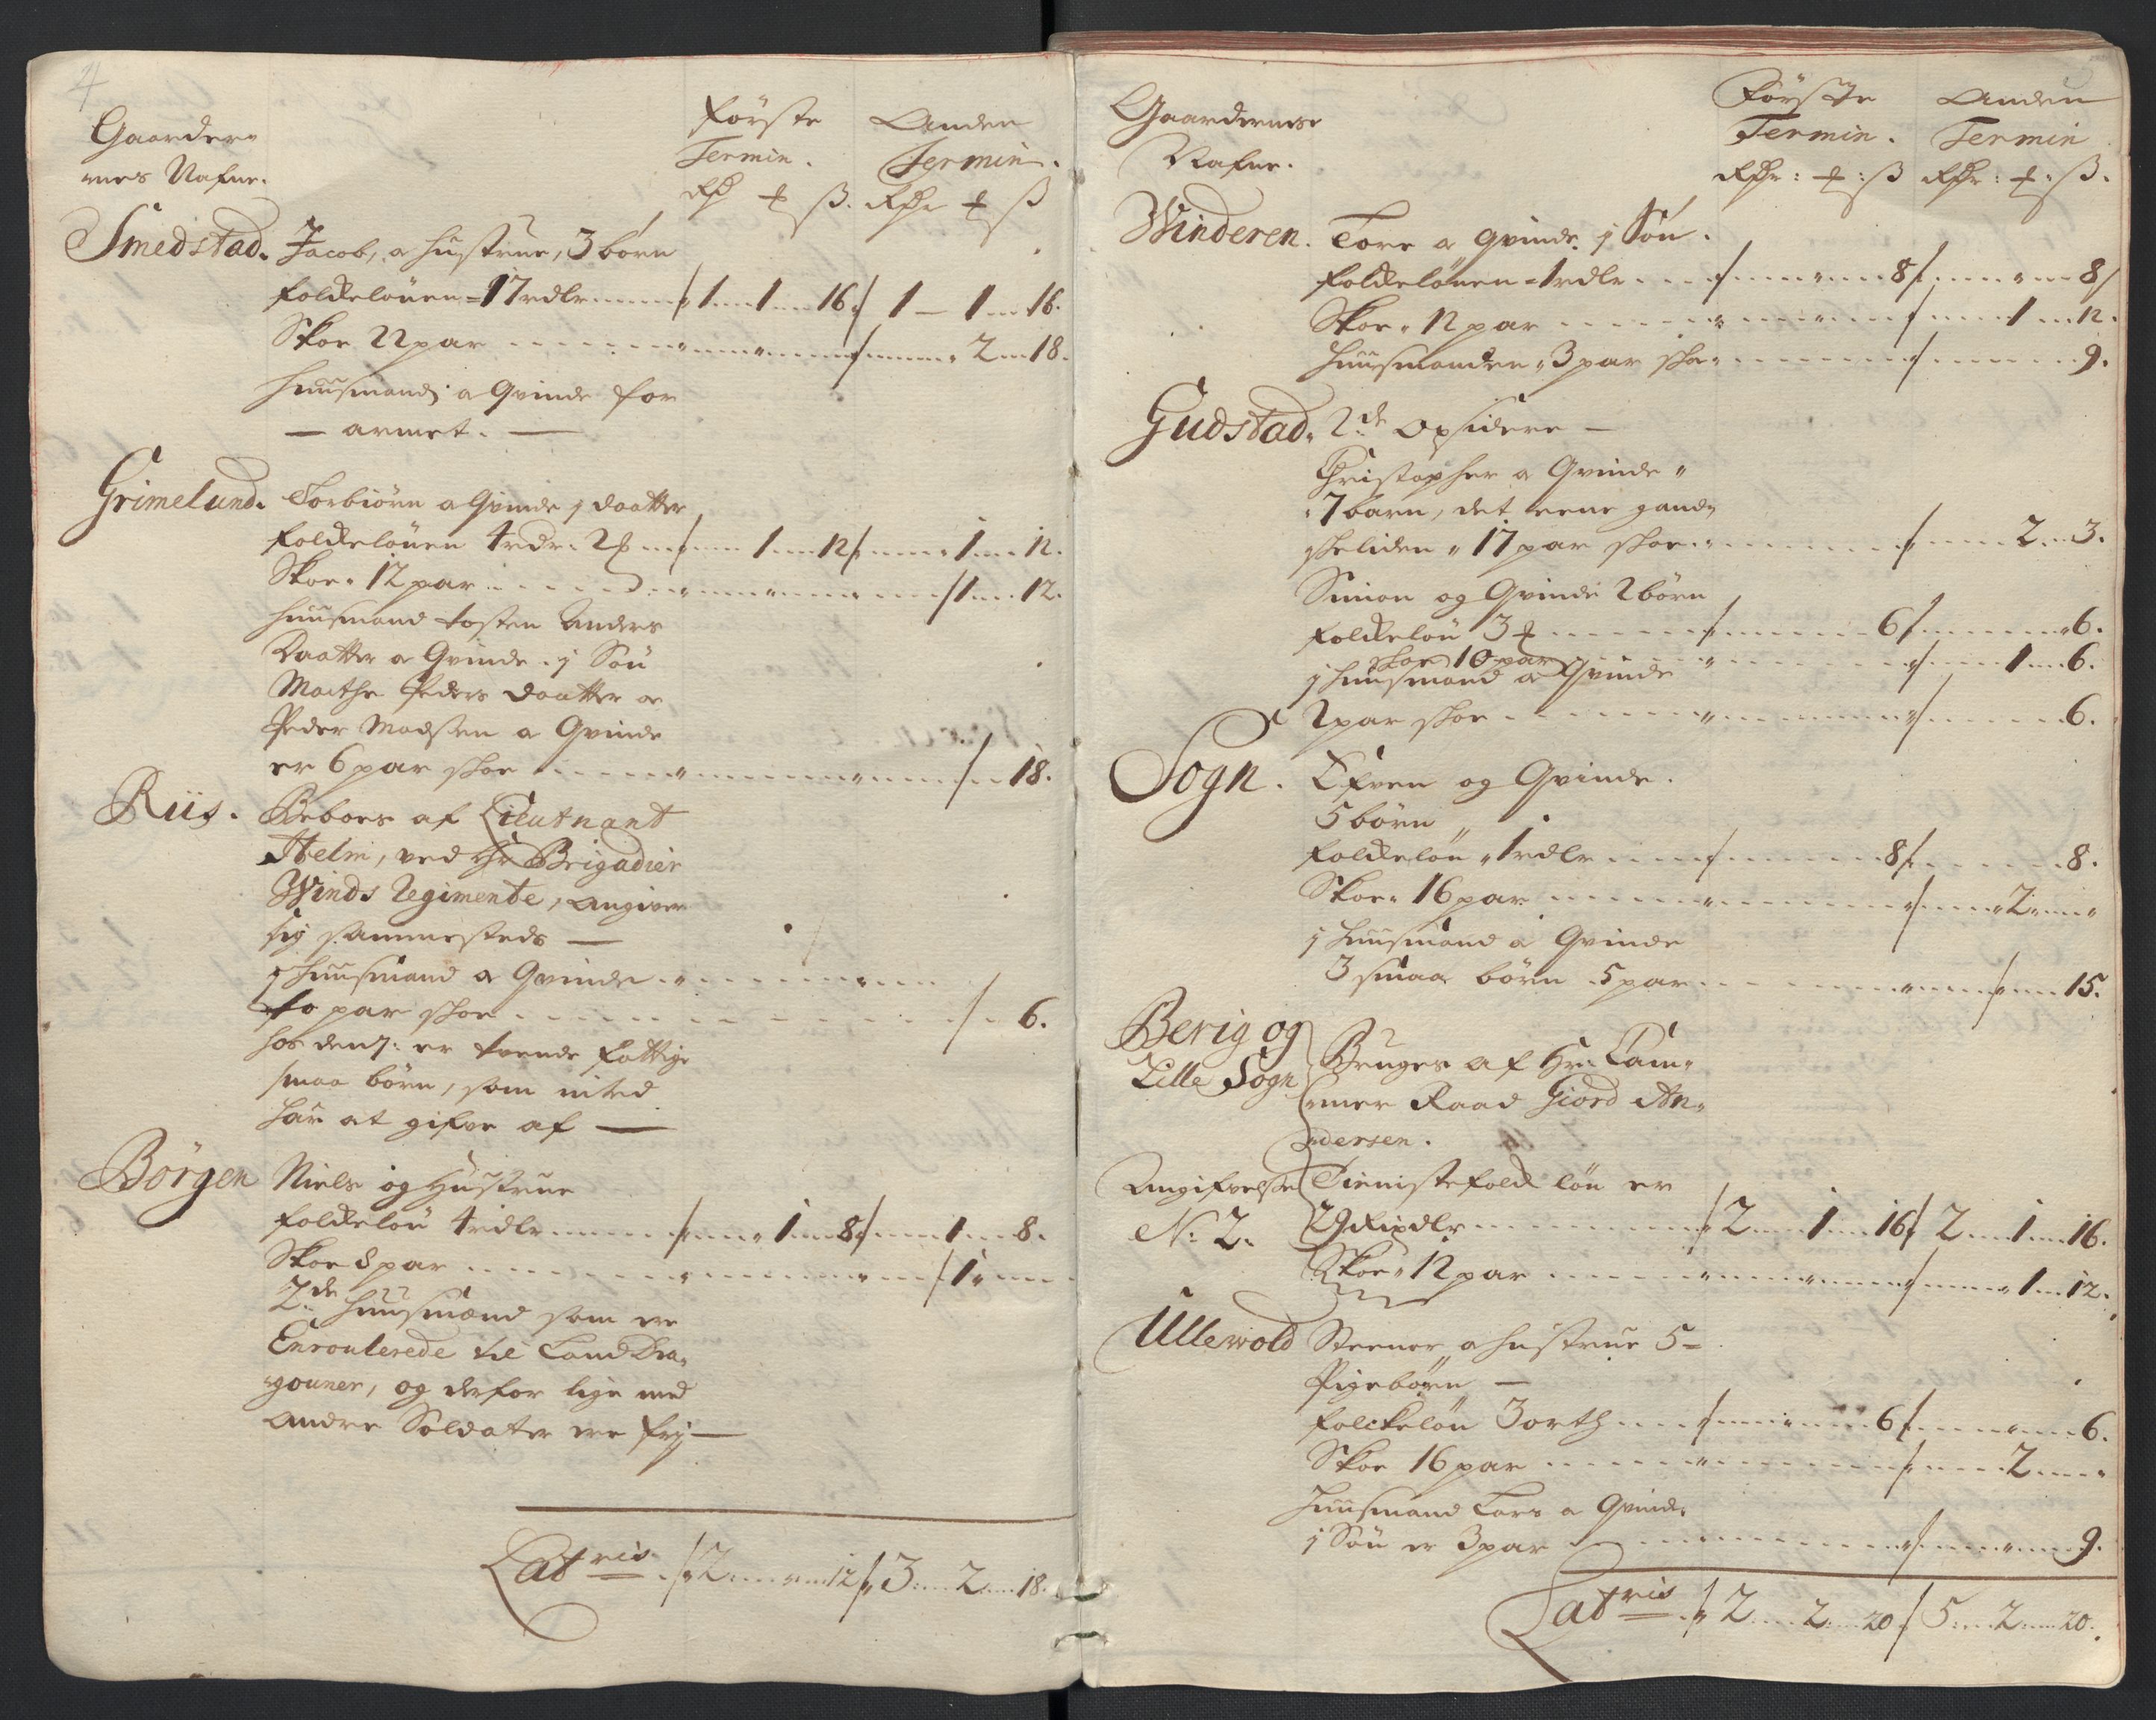 Gaarder-
nes Nafne.
Första
Termin.
Rdr ort ß.
Anden
Termin.
Rdr ort ß
Smedstad. Jacob, a hustrue, 3 børn
folckelønen = 17 rdlr 1 1 16 1 1 16.
Skoe 22 par 2 18.
huusmand a Qvinde for
armet.
Grimelund. Torbiørn a Qvinde j daatter
folckelønen 4 rdr. 2 ort 1 12 1 12.
Skoe 12 par 1 12.
huusmand Tosten Anders
Daatter a Qvinde j Søn
Marthe Peders daatter og
Peder Madsen a Qvinde
er 6 par skoe 18.
Riis. Beboes af Lieutnant
Helm, ved Hr Brigadier
Winds Regimente, angiver
sig sammesteds
j huusmand a Qvinde
to par skoe 6.
hos dem er tvende fattige
smaa børn, som inted
har at gifve af
Børgen Niels og Hustrue
folckeløn 4 rdlr 1 8 1 8.
Skoe 8 par 1
2de huusmænd som ere
Enroulerede til Land Dra-
gouner, og derfor lige med
andre Soldater ere frj
Latris 2 12 3 2 18.
Gaardernes
Nafne.
Første
Termin.
Rdr: ort: ß
Anden
Termin
Rdr: ort: ß.
Winderen. Tore a qvinde j Søn.
folckelønen 1 rdlr 8 8
Skoe 12 par 1 12.
Huusmanden 3 par skoe 9.
Gudstad. 2de Opsidere
Christopher a Qvinde
7 børn, det eene gand-
skeliden 17 par skoe 2 3.
Simon og Qvinde 2 børn
folckeløn 3 ort 6 6.
skoe 10 par 1 6.
j huusmand a Qvinde
2 par skoe 6.
Sogn. Efven og Qvinde.
5 børn
folckeløn 1 rdlr 8 8.
Skoe 16 par 2
j huusmand a Qvinde
3 smaa børn 5 par 15.
Berig og
Lille Sogn
Bruges af Hr. Cam-
mer Raad Giord An-
dersen.
Angifvelse
No: 2.
Tienistefolck løn er
29 Rixdlr 2 1 16 2 1 16.
Skoe 12 par 1 12.
Ullewold Steener a hustrue 5
Pigebørn
folckeløn 3 orth 6 6.
Skoe 16 par 2
Huusmand Lars a Qvinde
j Søn er 3 par 9.
Latris 2 2 20 5 2 20.